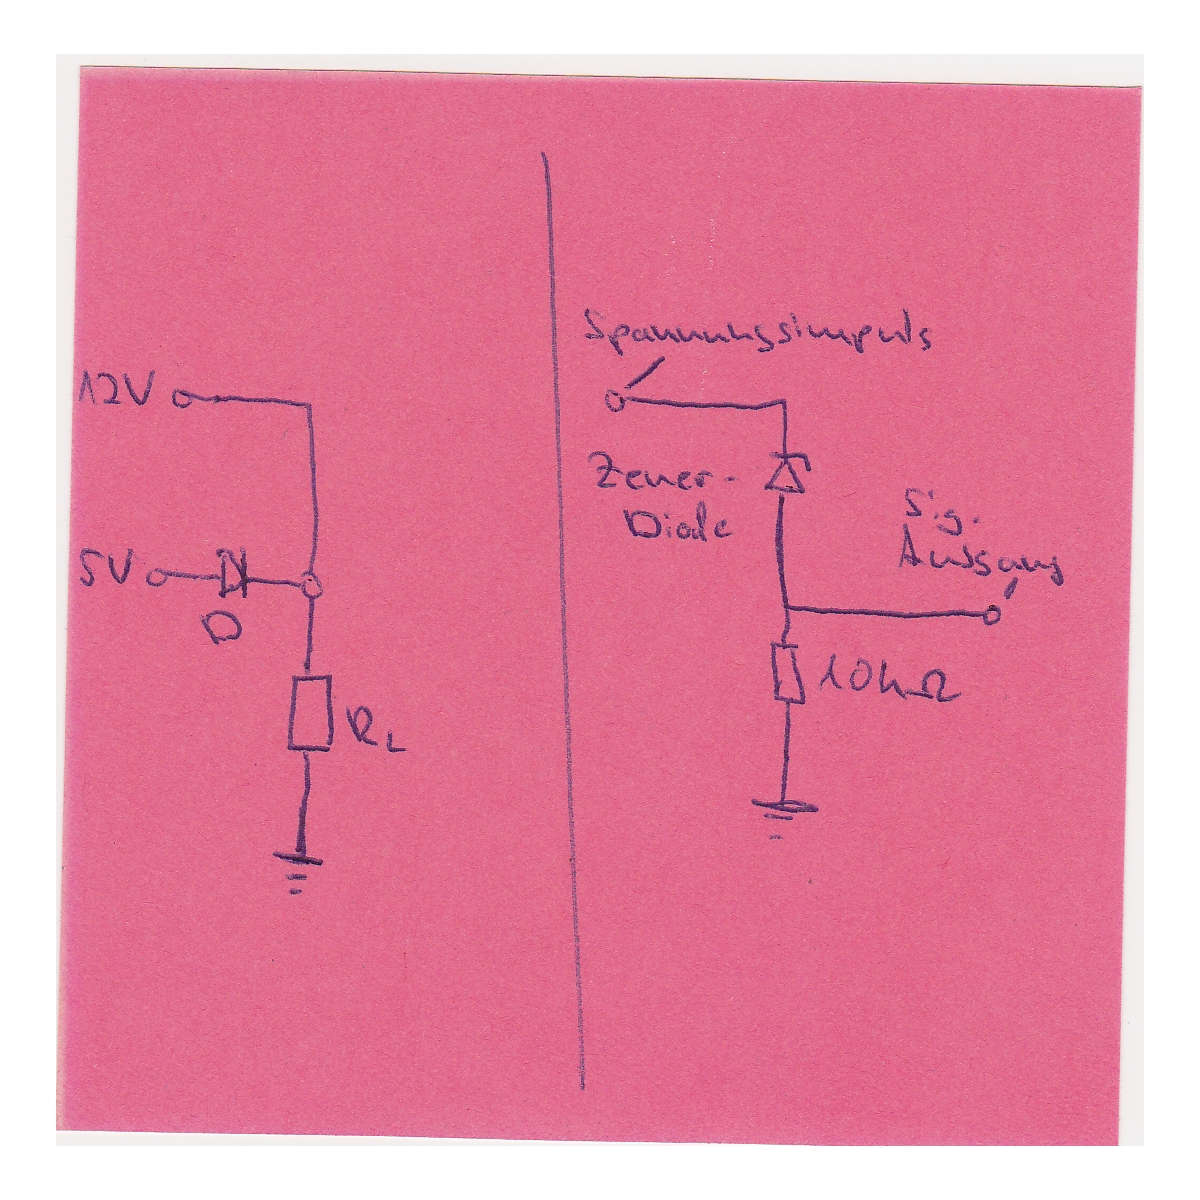 12V
5V
D
RL
Spannungsimpuls
Zener-
Diode
Sig.
Ausgang
10kΩ